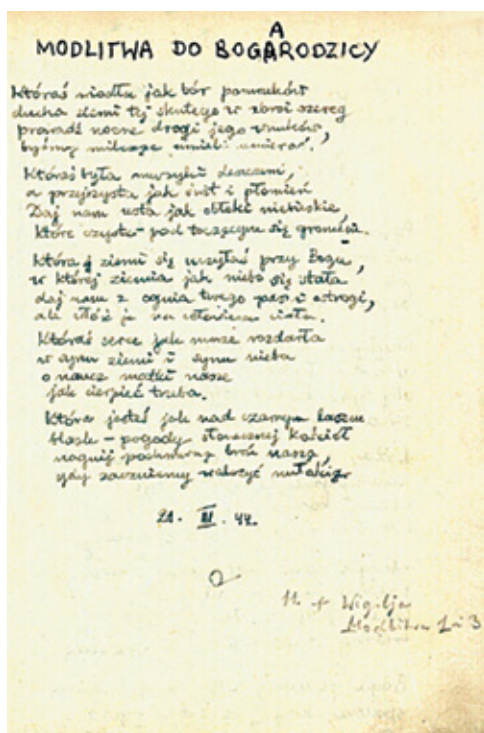 A
MODLITWA DO BOGARODZICY
Któraś wiodła jak bór pomruków
ducha ziemi tej skutego w zbroi szereg
prowadź nocne drogi jego wnuków,
byśmy milcząc umieli umierać.
Któraś była muzyki deszczem,
a przejrzysta jak świt i płomień
Daj nam usta jak obłoki niebieskie,
które czyste - pod toczącym się gromem.
Która ziemi się uczyłaś przy Bogu,
w której ziemia jak niebo się stała
daj nam z ognia twego pas i ostrogi,
ale włóż je na człowiecze ciała.
Któraś serce jak morze rozdarła
w synu ziemi i synu nieba
o naucz matki nasze
jak cierpieć trzeba.
Która jesteś jak nad czarnym lasem
blask - pogody słonecznej kościół
nagnij pochmurną broń naszą,
gdy zaczniemy walczyć miłością
21. III. 44.
Wigilja
Modlitwa 1 i 3